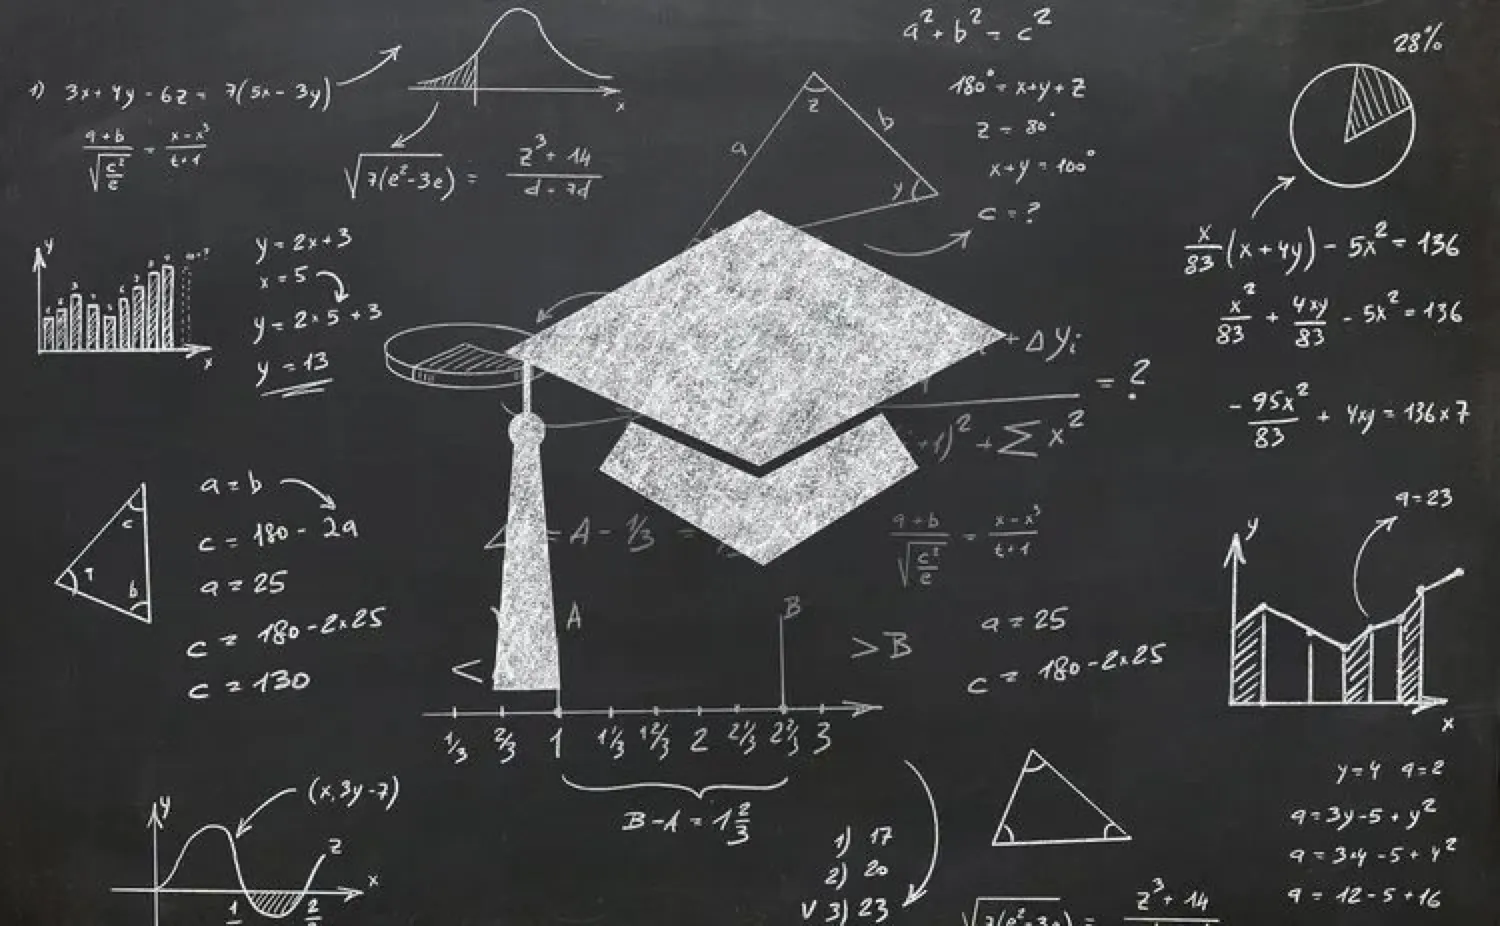 1) 3x + 4y - 6z = 7(5x - 3y)
a + b / √(c²/e) = x - x³ / t + 1
x
√7(e² - 3e) = z³ + 14 / d - 7d
a² + b² = c²
180° = x + y + z
z = 80°
x + y = 100°
c = ?
z
a
b
y
28%
x/83 (x + 4y) - 5x² = 136
x²/83 + 4xy/83 - 5x² = 136
- 95x²/83 + 4xy = 136 x 7
y
x
y = 2x + 3
x = 5
y = 2 x 5 + 3
y = 13
+ Δyᵢ
= ?
+1)² + Σx²
c
b
a = b
c = 180 - 2a
a = 25
c = 180 - 2x25
c = 130
- A - 1/3 =
a + b / √(c²/e) = x - x³ / t + 1
a = 25
c = 180 - 2x25
a = 23
y
x
A
B
<
> B
1/3 2/3 1 1 1/3 1 2/3 2 2 1/3 2 2/3 3
B - A = 1 2/3
y
(x, 3y - 7)
z
x
1
2
1) 17
2) 20
V 3) 23
√7(e² - 3e) = z³ + 14
y = 4 a = 2
a = 3y - 5 + y²
a = 3x4 - 5 + 4²
a = 12 - 5 + 16